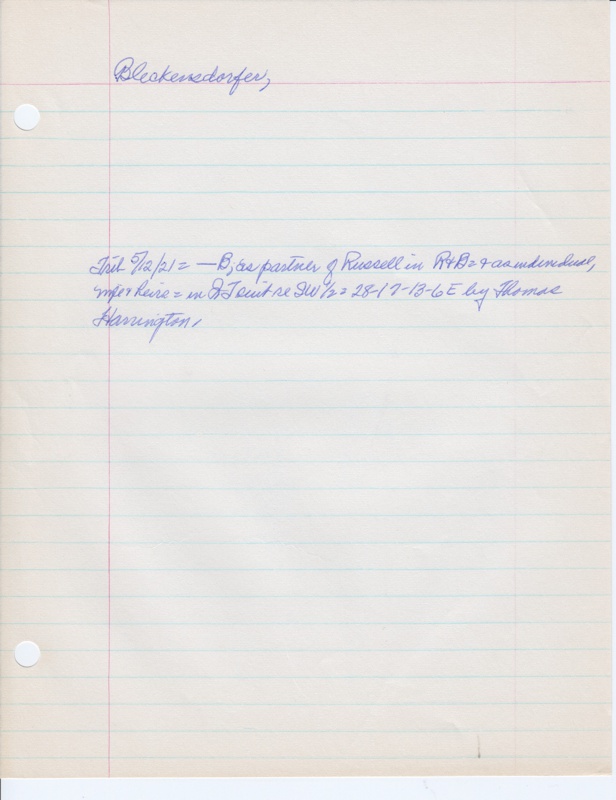 Bleckensdorfer,
Trib 5/12/21 = — B, as partner of Russell in R+B = + as individual,
+ Heirs = in Q T suit re SW/2 = 28-17-13-6E by Thomas
Harrington,